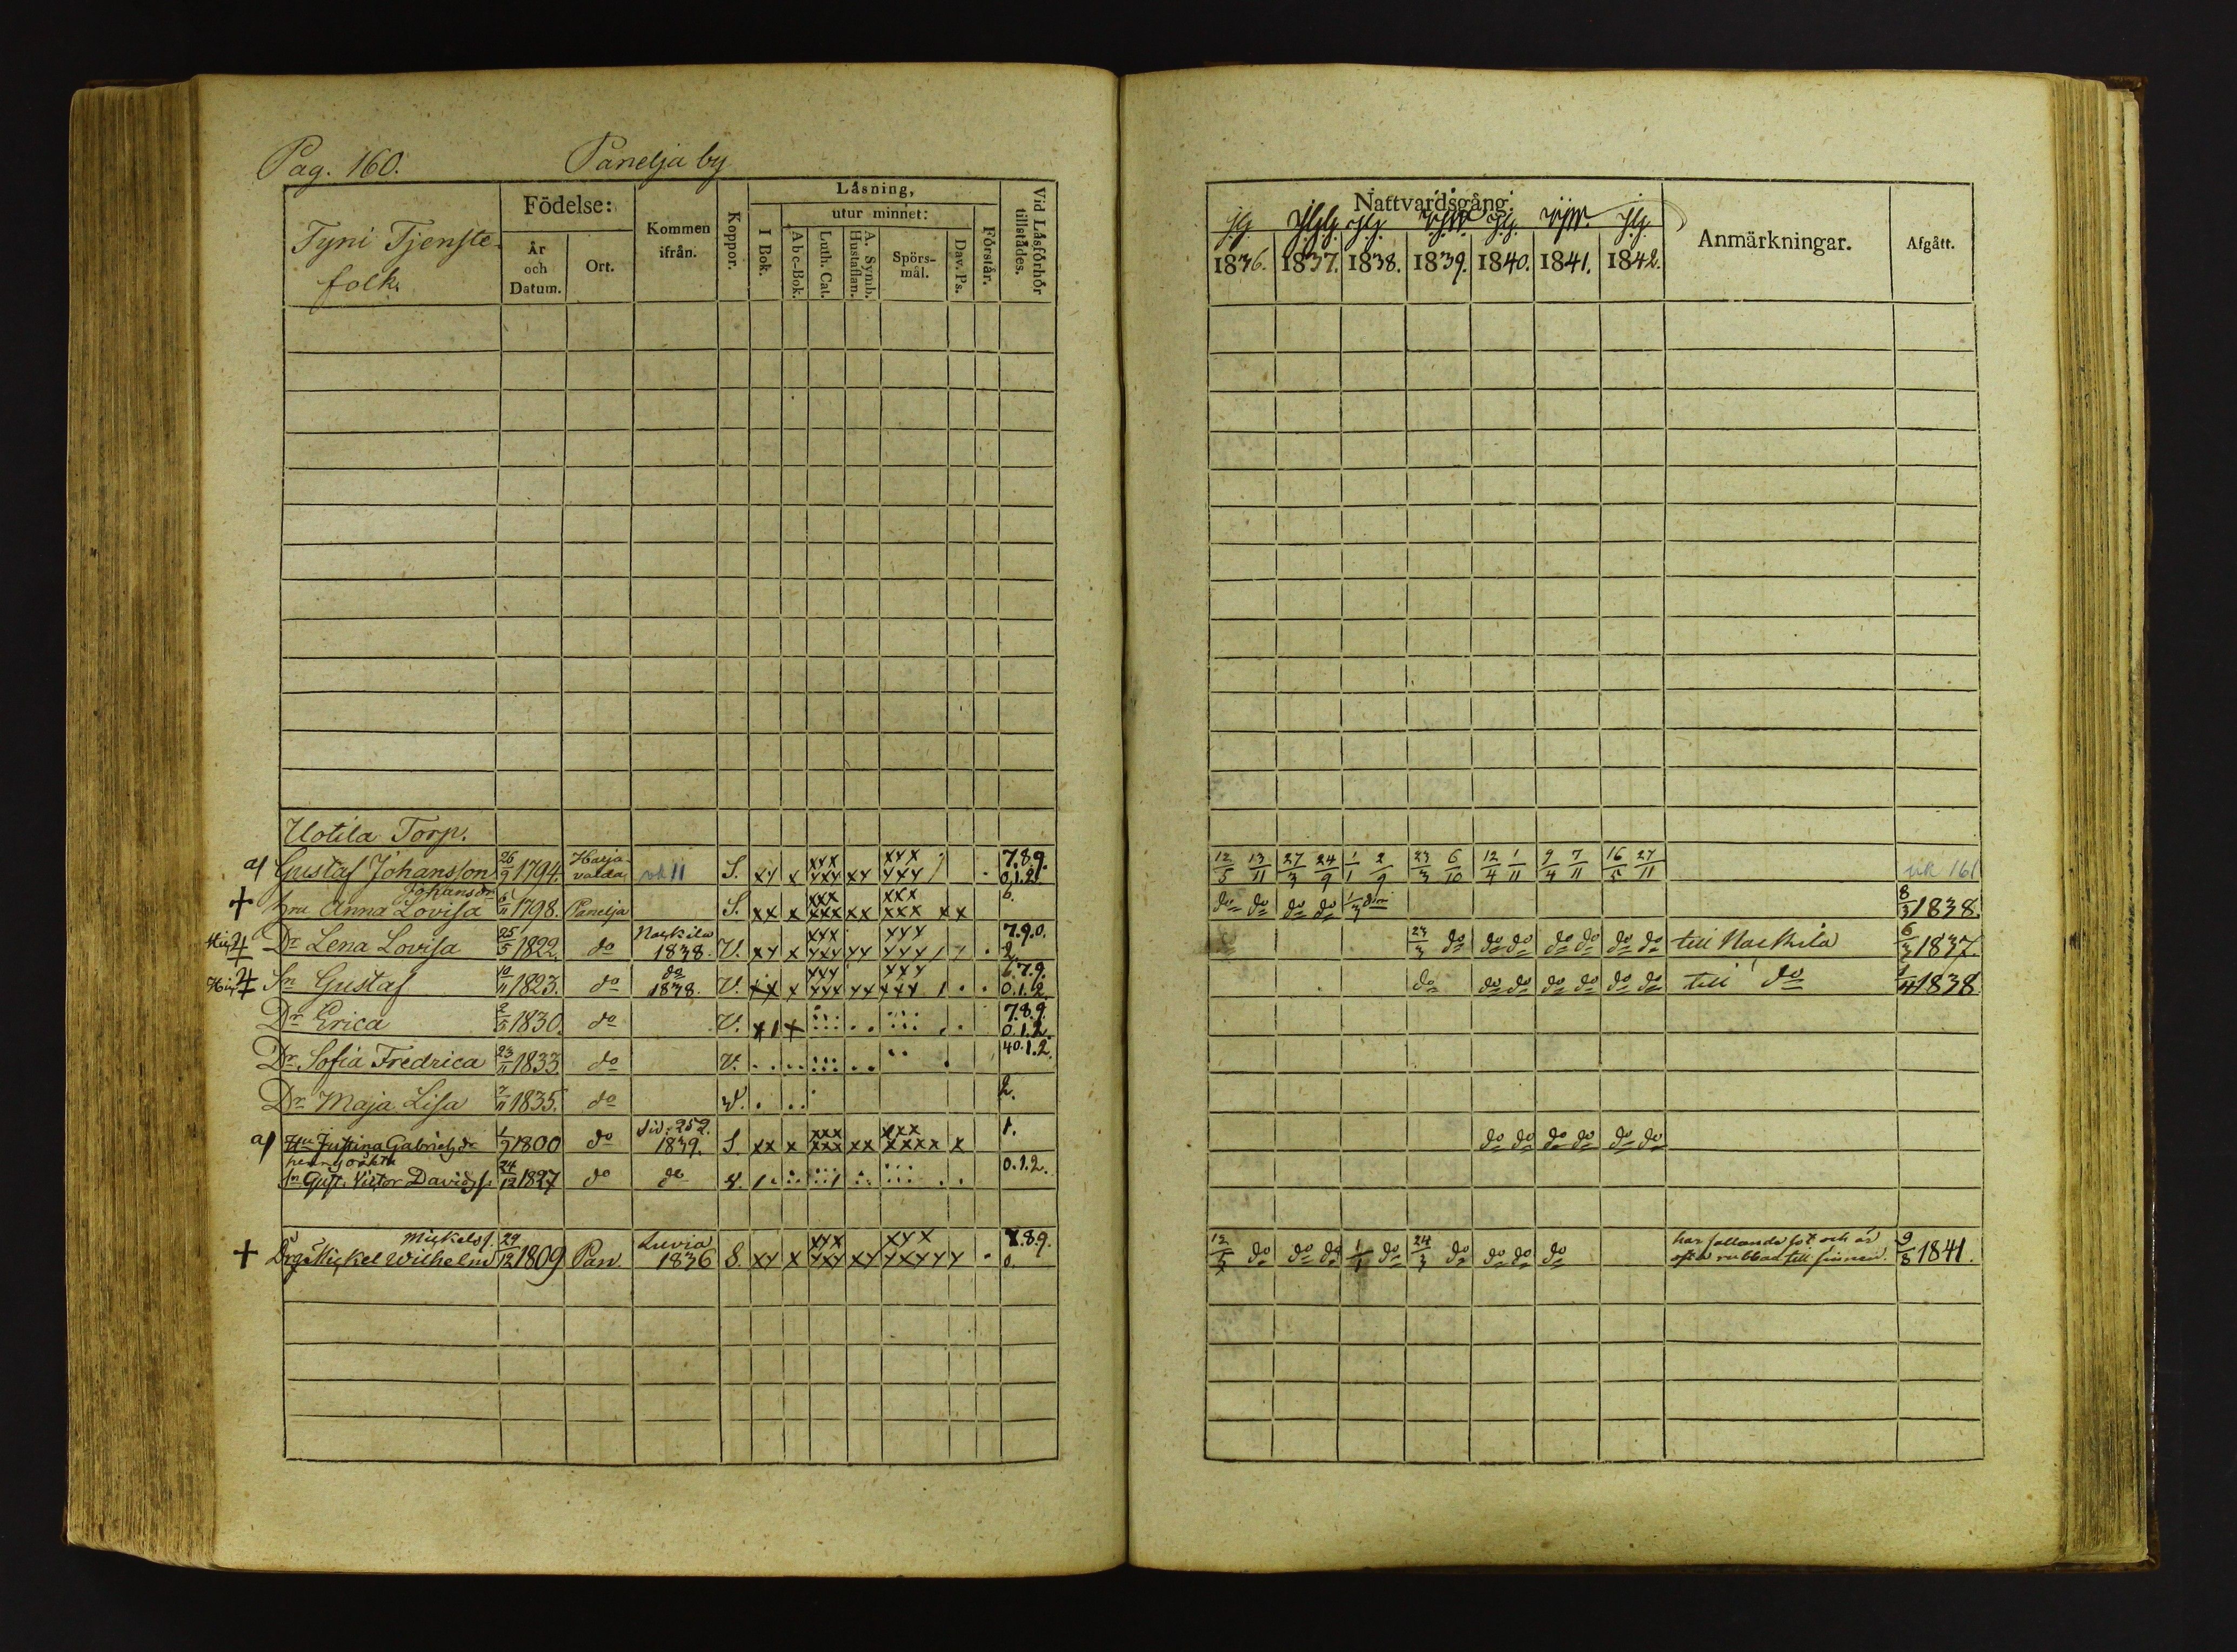 Pag. 160. Panelja by
Tyni Tjenste-
folk.
Födelse:
År
och
Datum.
Ort.
Kommen
ifrån.
Koppor.
Läsning,
I Bok.
utur minnet:
Abc-Bok.
Luth. Cat.
A. Symb.
Hustaflan.
Spörs-
mål.
Dav. Ps.
Förstår.
Vid Läsförhör
tillstådes.
Nattvardsgång.
1836. 1837. 1838. 1839. 1840. 1841. 1842.
Anmärkningar.
Afgått.
Uotila Torp.
Gustaf Johansson 26/9 1794. Harja-
valda S. xx x xxx xxx xx xxx xxx 7.8.9.
0.1.2. 12/5 13/11 27/3 24/9 1/1 2/9 23/3 6/10 12/4 1/11 9/4 7/11 16/5 27/11 161
+ hru Anna Lovisa Johansdr 1798. Panelja S. xx x xxx xxx xx xxx xxx xx 6. do do do do 8/3 1838.
Dr Lena Lovisa 25/5 1822. do Nackila
1838. V. xx x xxx xxx xx xxx xxx 7.9.0.
2. 23/3 do do do do do do do till Nackila 6/3 1837.
Sn Gustaf 10/11 1823. do do
1838. V. xx x xxx xxx xx xxx xxx 6.7.9.
0.1.2. do do do do do do do till do 1838
Dr Erica 2/5 1830. do V. 7.8.9.
0.1.2.
Dr Sofia Fredrica 23/11 1833. do V. 40.1.2.
Dr Maja Lisa 1835. do V. 2.
Hu Justina Gabrielsdr 1800 do Sid. 252.
1839. S. xx x xxx xxx xx xxx xxxx x 1. do do do do do do
hennes oäkta
Sn Gust. Victor Davidss. 24/12 1827 do do V. 0.1.2.
+ Drg Mickel Wilhelm Mickelss. 29/12 1809 Pan. Luvia
1836 S. xx x xxx xxx xx xxx xxxxx 7.8.9.
0. 12/5 do do do 1/1 do 24/3 do do do do har fallande sot och är
ofta rubbad till sinnen. 9/8 1841.